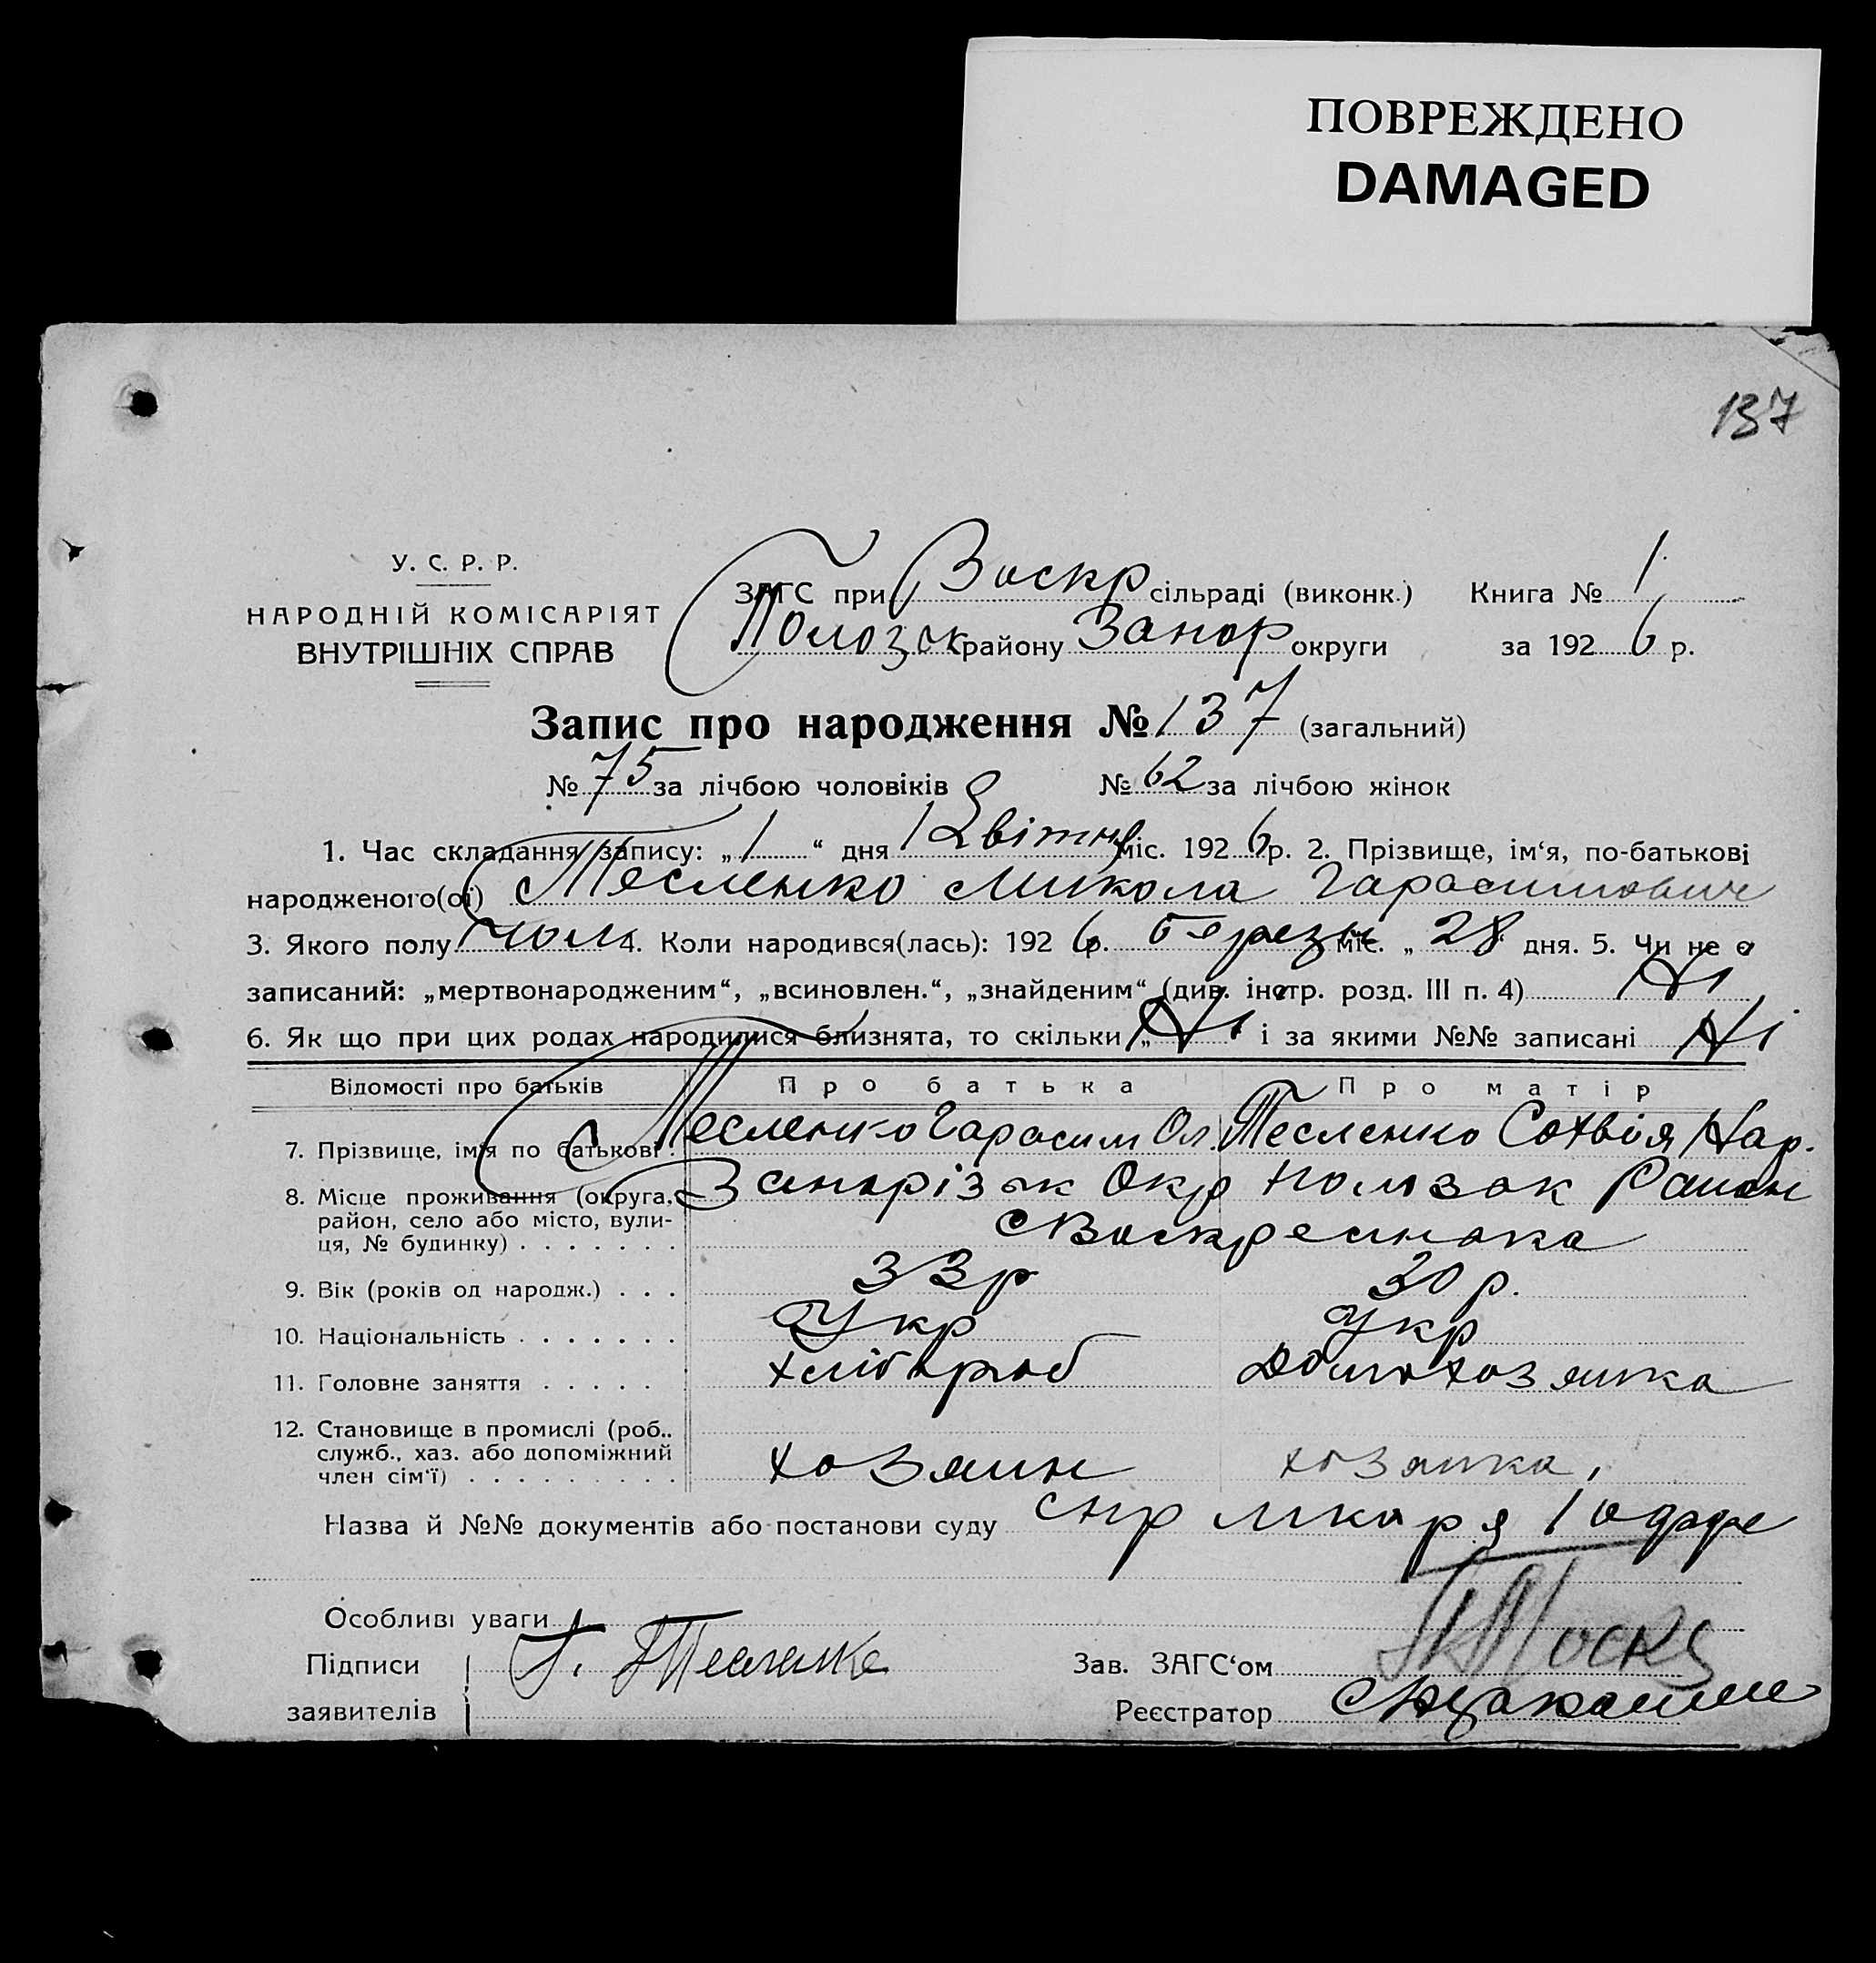 ПОВРЕЖДЕНО
DAMAGED
137
У. С. Р. Р.
НАРОДНІЙ КОМІСАРІЯТ
ВНУТРІШНІХ СПРАВ
ЗАГС при Воскр сільраді (виконк.) Книга № 1
Пологзк району Запор округи за 1926 р.
Запис про народження № 137 (загальний)
№ 75 за лічбою чоловіків № 62 за лічбою жінок
1. Час складання запису: „1“ дня Квітня міс. 1926 р. 2. Прізвище, ім‘я, по-батькові
народженого(ої) Тесленко Микола Гарасимович
3. Якого полу чол 4. Коли народився(лась): 1926 р. березн міс. „28 дня. 5. Чи не є
записаний: „мертвонародженим“, „всиновлен.“, „знайденим“ (див. інстр. розд. III п. 4) Ні
6. Як що при цих родах народилися близнята, то скільки „Ні і за якими №№ записані Ні
Відомості про батьків Про батька Про матір
7. Прізвище, ім‘я по батькові. Тесленко Гарасим Ол. Тесленко Сохвія Нар.
8. Місце проживання (округа, Запорізьк Окр Пологзк Район
район, село або місто, вули-
ця, № будинку) . . . . . . . Воскресенка
9. Вік (років од народж.) . . . 33 р 30 р.
10. Національність . . . . . . . Укр Укр
11. Головне заняття . . . . . хлібороб Домохозяйка
12. Становище в промислі (роб..
служб., хаз. або допоміжний
член сім‘ї) . . . . . . . . . хозяин хозяйка,
Назва й №№ документів або постанови суду
Особливі уваги
Підписи Г. Тесленко Зав. ЗАГС‘ом
заявителів Реєстратор